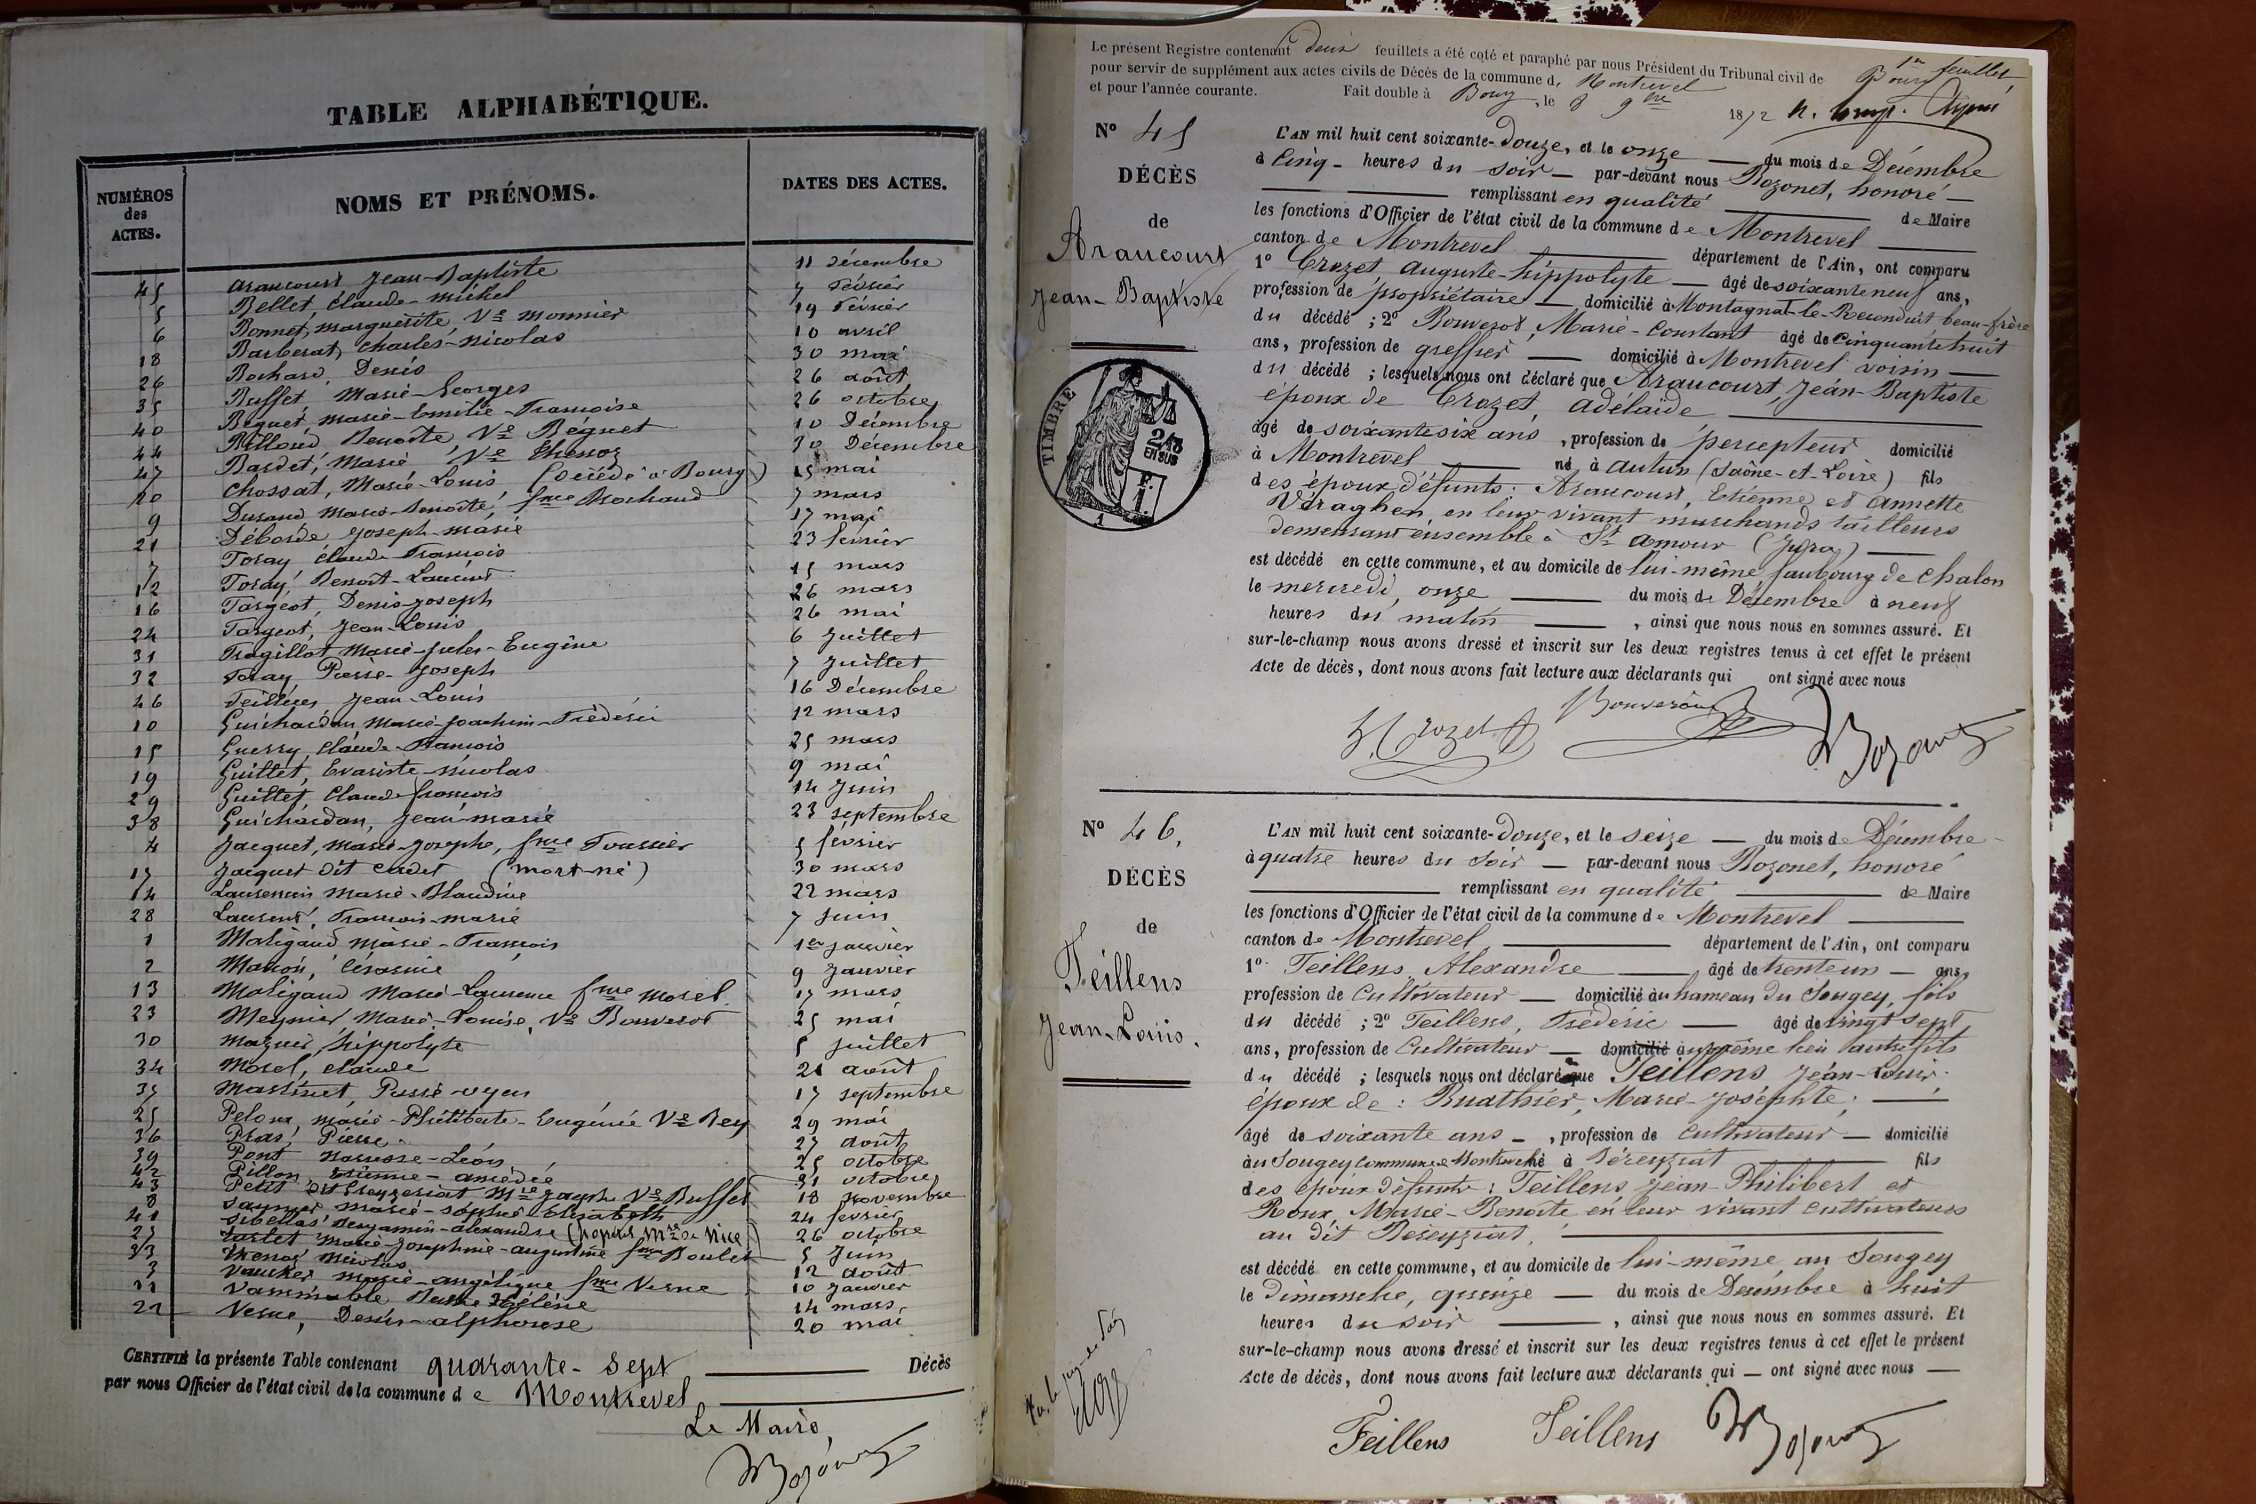 TABLE ALPHABÉTIQUE.
NUMÉROS des ACTES. NOMS ET PRÉNOMS. DATES DES ACTES.
45 Araucourt Jean-Baptiste 11 Décembre
5 Bellet, Claude-Michel 7 Février
6 Bonnet, Marguerite, Ve Monnier 19 Février
18 Barberat, Charles-Nicolas 10 avril
26 Bochard, Denis 30 mai
35 Buffet Marie-Georges 26 août
40 Béguet, Marie-Emilie-Françoise 26 octobre
44 Billoud, Benoîte, Ve Béguet 10 Décembre
47 Bardet, Marie, Ve Chesnoz 30 Décembre
20 Chossat, Marie-Louis (Décédé à Bourg) 15 mai
9 Durand Marie-Benoîte, fme Brochand 7 mars
21 Déborde Joseph-Marie 17 mai
7 Foray Claude François 23 février
12 Foray, Benoît-Laurent 15 mars
16 Fargeot, Denis-Joseph 26 mars
24 Fargeot, Jean-Louis 26 mai
31 Fragillot, Marie-Jules-Eugène 6 Juillet
32 Foray Pierre-Joseph 7 Juillet
46 Feillens Jean-Louis 16 Décembre
10 Guichardan Marie-Joachim-Frédéric 12 mars
15 Guerry Claude-François 25 mars
19 Guillet, Evariste-Nicolas 9 mai
29 Guillet, Claude-François 14 Juin
38 Guichardan, Jean-Marie 23 septembre
4 Jacquet, Marie-Josephe, fme Foussier 5 février
17 Jacquet dit Cadet (mort-né) 30 mars
14 Laurencin Marie-Blandine 22 mars
28 Laurent, François-Marie 7 Juin
1 Maligaud Marie-François 1er Janvier
2 Manon, Césarine 9 Janvier
13 Maligaud Marie-Laurence fme Morel 17 mars
23 Meynier, Marie-Louise, Ve Bouverot 25 mai
30 Mazuir, hippolyte 5 Juillet
34 Morel, Claude 21 août
37 Martinet, Pierre 17 septembre
25 Peloux, Marie-Philiberte-Eugénie Ve Rey 29 mai
36 Pras, Pierre 27 août
39 Pont Narcisse-Léon 25 octobre
42 Pillon Etienne-Amédée 31 octobre
43 Petit dit Greyzériat Mie Joseph Ve Buffet 18 novembre
8 Marie-Sophie-Elisabeth 24 février
41 Sibellas, Benjamin-Alexandre 26 octobre
27 Tartet Marie-Joséphine-Augustine fme Boulet 5 Juin
33 Thenoz Nicolas 12 août
3 Vaucher Marie-Angélique fme Verne 10 Janvier
11 14 mars
22 Verne, Désiré-Alphonse 20 mai
CERTIFIÉ la présente Table contenant quarante-sept Décès
par nous Officier de l'état civil de la commune de Montrevel
Le Maire,
Bozonet
Le présent Registre contenant deux feuillets a été coté et paraphé par nous Président du Tribunal civil de Bourg 1er feuillet
pour servir de supplément aux actes civils de Décès de la commune de Montrevel
et pour l'année courante. Fait double à Bourg, le 8 9bre 1872
No 45
DÉCÈS
de
Araucourt
Jean-Baptiste
TIMBRE
2/10
EN SUS
F.
1.
L'AN mil huit cent soixante-Douze, et le onze du mois de Décembre
à Cinq heures du soir par-devant nous Bozonet, honoré
remplissant en qualité de Maire
les fonctions d'Officier de l'état civil de la commune de Montrevel
canton de Montrevel département de l'Ain, ont comparu
1o Crozet Auguste-hippolyte âgé de soixante neuf ans,
profession de propriétaire domicilié à Montagnat-le-Reconduit beau-frère
du décédé ; 2o Bouverot, Marie-Constant âgé de cinquante huit
ans, profession de greffier domicilié à Montrevel voisin
du décédé ; lesquels nous ont déclaré que Araucourt, Jean-Baptiste
époux de Crozet, Adélaïde
âgé de soixante six ans, profession de percepteur domicilié
à Montrevel né à Autun (Saône-et-Loire) fils
des époux défunts : Araucourt, Etienne et Annette
Véraghen en leur vivant marchands tailleurs
demeurant ensemble à St Amour (Jura)
est décédé en cette commune, et au domicile de lui-même, faubourg de Chalon
le mercredi, onze du mois de Décembre à neuf
heures du matin, ainsi que nous nous en sommes assuré. Et
sur-le-champ nous avons dressé et inscrit sur les deux registres tenus à cet effet le présent
Acte de décès, dont nous avons fait lecture aux déclarants qui ont signé avec nous
H. Crozet Bouverot Bozonet
No 46.
DÉCÈS
de
Feillens
Jean-Louis.
L'AN mil huit cent soixante-Douze, et le seize du mois de Décembre
à quatre heures du soir par-devant nous Bozonet, honoré
remplissant en qualité de Maire
les fonctions d'Officier de l'état civil de la commune de Montrevel
canton de Montrevel département de l'Ain, ont comparu
1o Feillens Alexandre âgé de trente un ans,
profession de Cultivateur domicilié au hameau du Sougey, fils
du décédé ; 2o Feillens, Frédéric âgé de vingt sept
ans, profession de Cultivateur domicilié au même lieu autre fils
du décédé ; lesquels nous ont déclaré que Feillens Jean-Louis
époux de : Buathier, Marie-Josephte ;
âgé de soixante ans, profession de Cultivateur domicilié
au Sougey commune Montrevel né à Béreyziat fils
des époux défunts : Feillens, Jean-Philibert et
Roux, Marie-Benoîte en leur vivant cultivateurs
au dit Béreyziat.
est décédé en cette commune, et au domicile de lui-même, au Sougey
le Dimanche, quinze du mois de Décembre à huit
heures du soir, ainsi que nous nous en sommes assuré. Et
sur-le-champ nous avons dressé et inscrit sur les deux registres tenus à cet effet le présent
Acte de décès, dont nous avons fait lecture aux déclarants qui ont signé avec nous
Feillens Feillens Bozonet